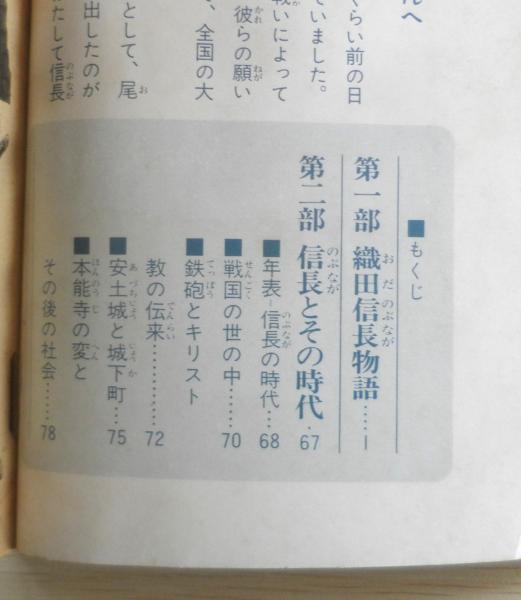 んへ
くらい前の日
ていました。
戦いによって
彼らの願い
、全国の大
として、尾
出したのが
たして信長
■もくじ
第一部 織田信長物語……1
第二部 信長とその時代・67
■年表-信長の時代…68
■戦国の世の中……70
■鉄砲とキリスト
教の伝来…………72
■安土城と城下町…75
■本能寺の変と
その後の社会……78